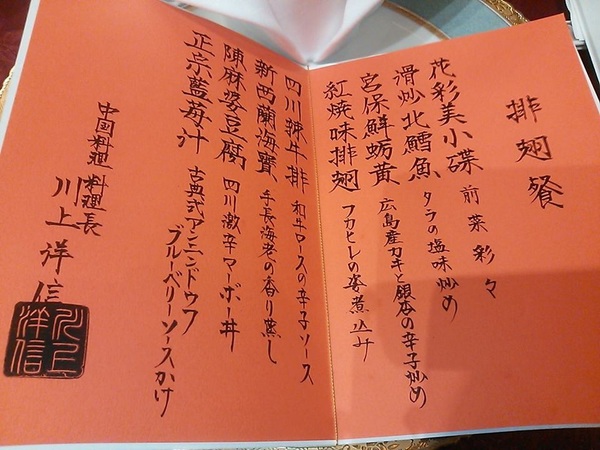 排翅餐
花彩美小碟 前菜彩々
滑炒北鱈魚 タラの塩味炒め
宮保鮮蛎黄 広島産カキと銀杏の辛子炒め
紅焼味排翅 フカヒレの姿煮込み
四川辣牛排 和牛ロースの辛子ソース
新西蘭海寶 手長海老の香り蒸し
陳麻婆豆腐 四川激辛マーボー丼
正宗藍莓汁 古典式アンニンドウフ
ブルーベリーソースかけ
中国料理 料理長
川上洋信
川上
洋信